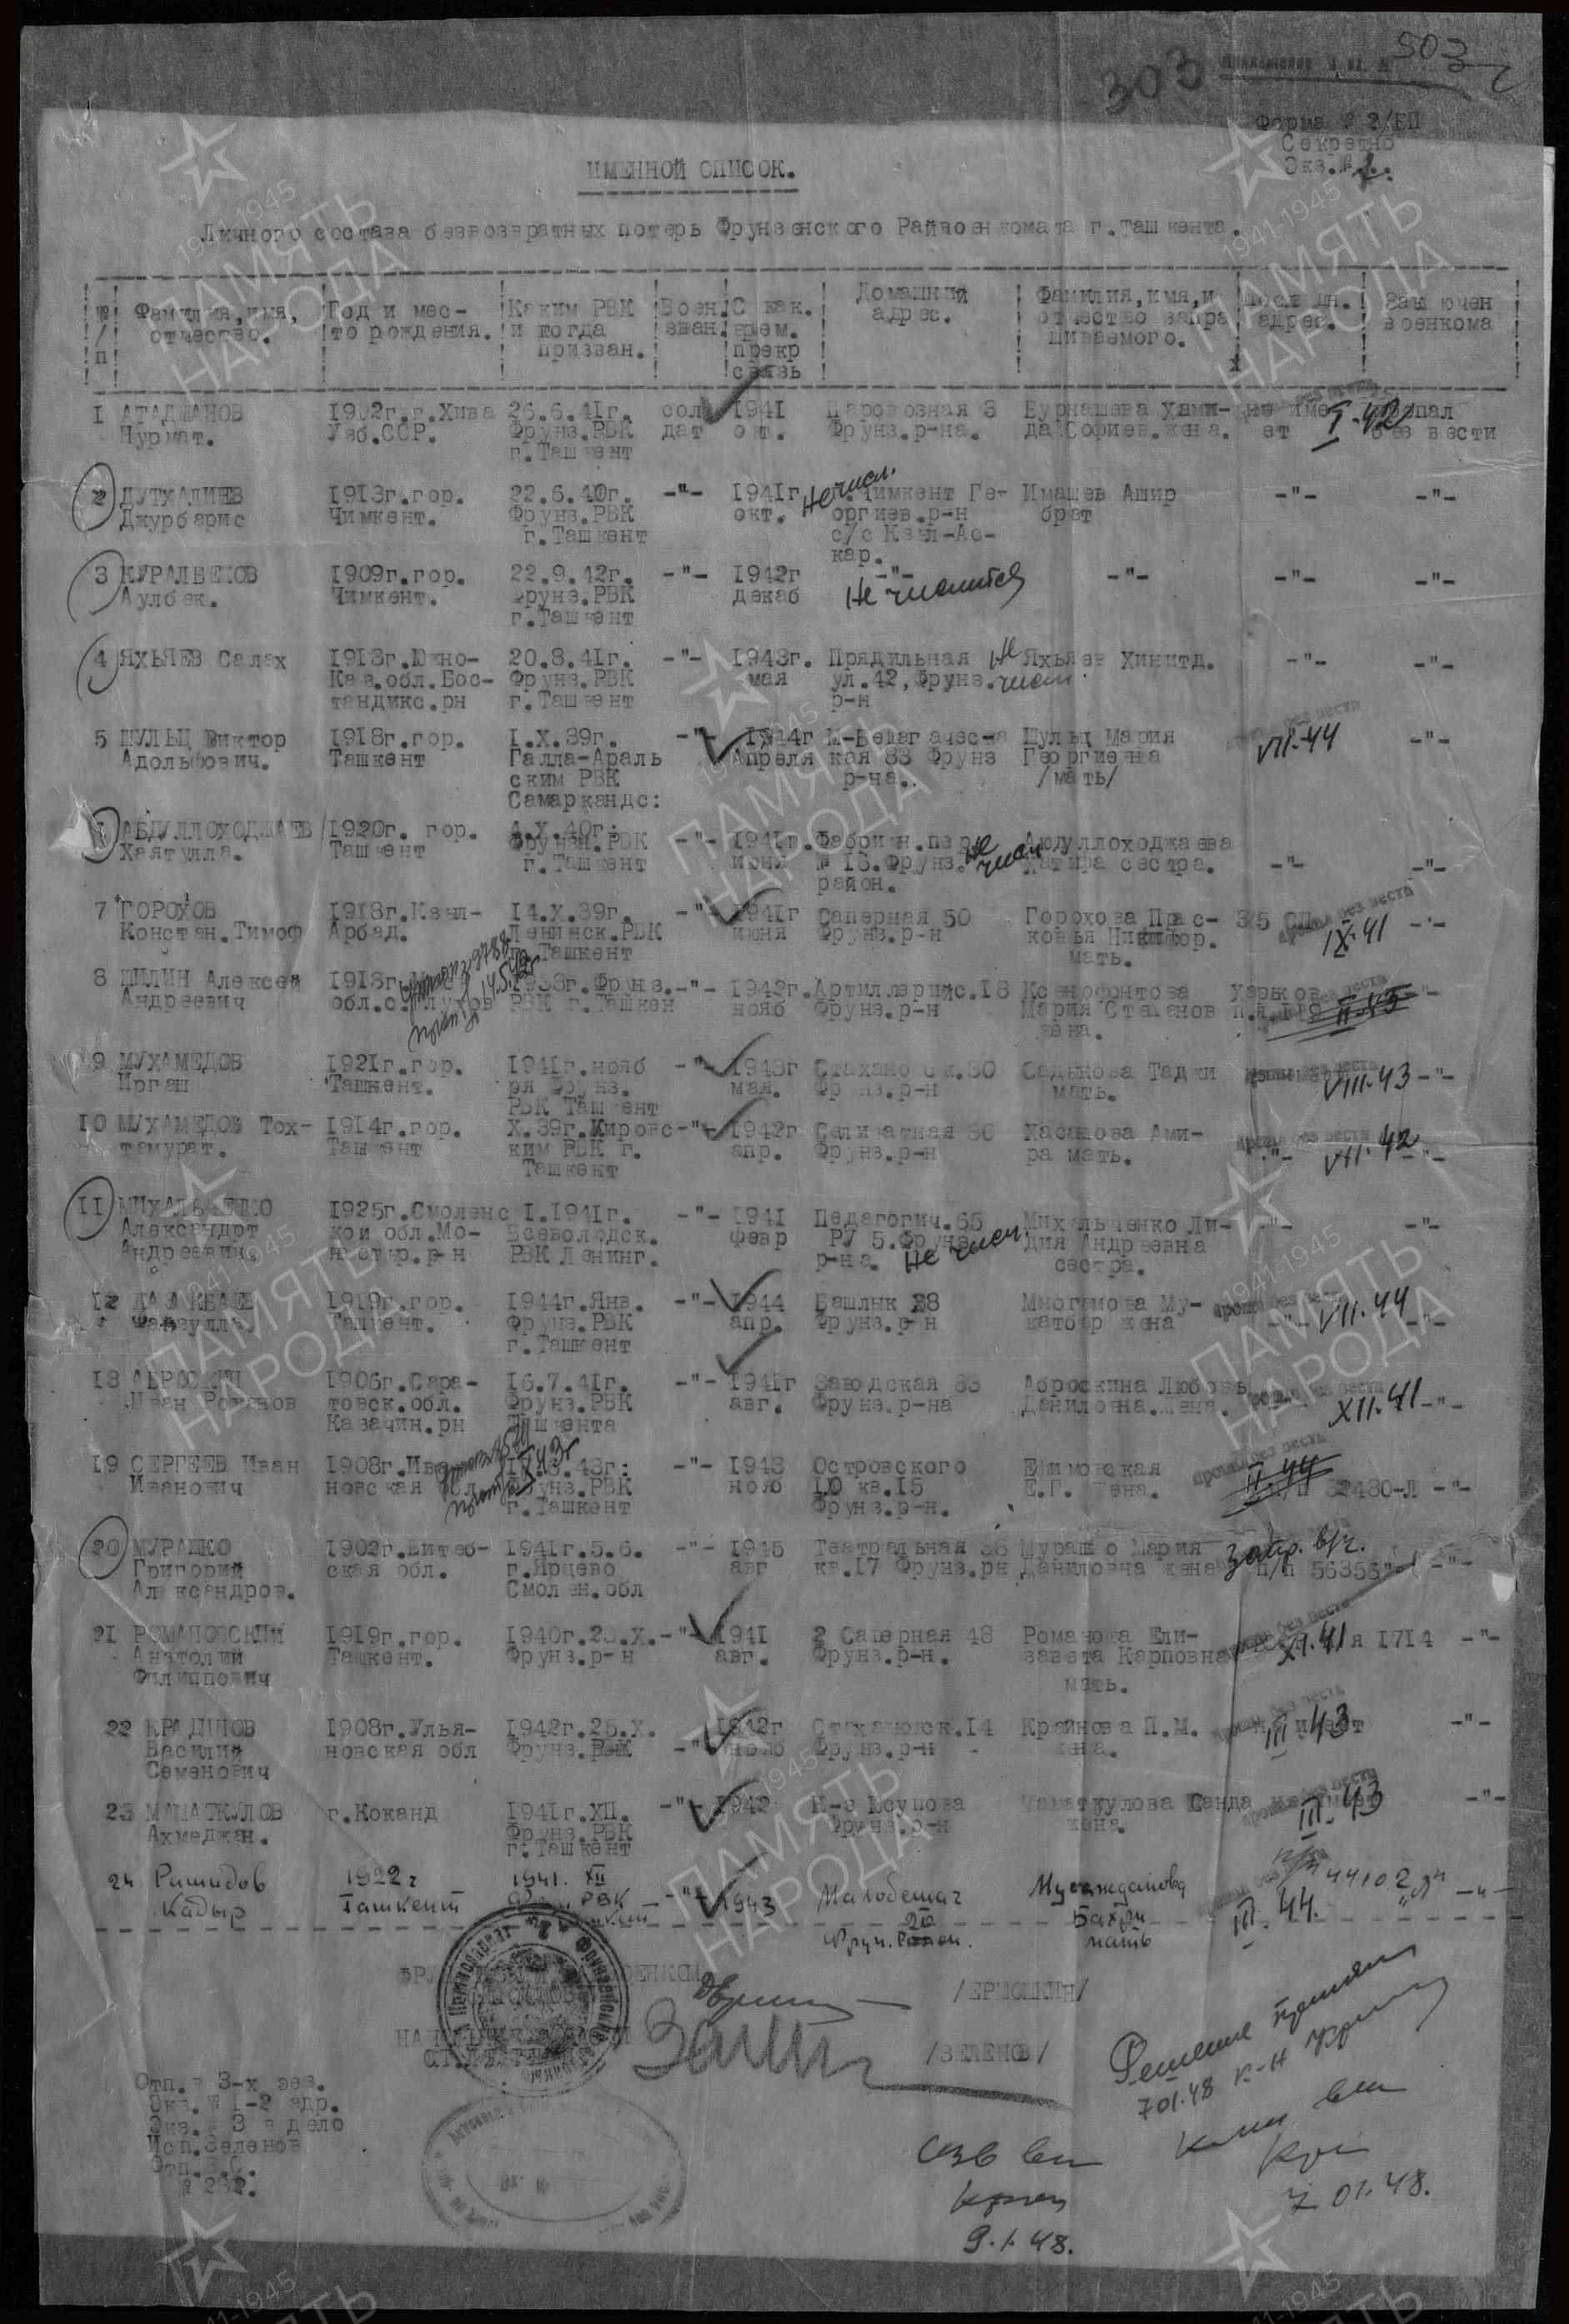 303
503
Форма № 2/БП
Секретно
Экз.№
ИМЕННОЙ СПИСОК.
Личного состава безвозвратных потерь Фрунзенского Райвоенкомата г.Ташкента.
№/п Фамилия,имя, отчество. Год и место рождения. Каким РВК и когда призван. Воен. зван. С как. врем. прекр связь Домашний адрес. Фамилия,имя,и отчество запрашиваемого. Послдн. адрес. Заключен военкома
1 АГАДЖАНОВ 1902г.г.Хива 26.6.41г. сол 1941 Паровозная 3 Бурнашева Хами- не име I-42 пропал
Нурмат. Узб.ССР. Фрунз.РВК дат окт. Фрунз.р-на. да Софиев.жена. ет без вести
г.Ташкент
2 ДУТХАЛИЕВ 1913г.гор. 22.6.40г. -"- 1941г не числ. г.Чимкент Ге- Имашев Ашир -"- -"-
Джурбарис Чимкент. Фрунз.РВК окт. оргиев.р-н брат
г.Ташкент с/с Кзыл-Ас-
кар.
3 КУРАЛБЕКОВ 1909г.гор. 22.9.42г. -"- 1942г -"- -"- -"- -"-
Аулбек. Чимкент. Фрунз.РВК декаб Не числится
г.Ташкент
4 ЯХЬЯЕВ Салах 1913г.Южно- 20.8.41г. -"- 1943г. Прядильная Не Яхьяев Хинитд. -"- -"-
Каз.обл.Бос- Фрунз.РВК мая ул.42,Фрунз. числ.
тандикс.рн г.Ташкент р-н
5 ШУЛЬЦ Виктор 1918г.гор. I.X.39г. -"- 1944г М-Бешагачес- Шульц Мария VII-44 -"-
Адольфович. Ташкент Галла-Араль Апреля кая 33 Фрунз Георгиевна
ским РВК р-на. /мать/
Самаркандс:
6 АБДУЛЛОХОДЖАЕВ 1920г. гор. 4.X.40г: -"- 1941г. Фабричн.пер. Не Абдуллоходжаева -"- -"-
Хаятулла. Ташкент Фрунзн.РВК июня № 16.Фрунз. числ Латифа сестра.
г.Ташкент район.
7 ГОРОХОВ 1918г.Кзыл- 14.X.39г. -"- 1941г Саперная 50 Горохова Прас- 375 СП IX-41 -"-
Констан.Тимоф Арбад. Ленинск.РВК июня Фрунз.р-н ковья Никифор.
г.Ташкент мать.
8 ШИЛИН Алексей 1918г. 1938г.Фрунз. -"- 1942г. Артиллерийс.18 Ксенофонтова Харьков -"-
Андреевич обл.с. РВК г.Ташкен нояб Фрунз.р-н Мария Степанов п.я. II-43
жена.
9 МУХАМЕДОВ 1921г.гор. 1941г.нояб -"- 1943г Стахановск.30 Садыкова Таджи VIII-43 -"-
Иргаш Ташкент. ря Фрунз. мая. Фрунз.р-н мать.
РВК Ташкент
10 МУХАМЕДОВ Тох- 1914г.гор. X.39г.Кировс -"- 1942г Селикатная 30 Касымова Ами- VII-42 -"-
тамурат. Ташкент ким РВК г. апр. Фрунз.р-н ра мать.
Ташкент
11 МИХАЛЬЧЕНКО 1925г.Смоленс I.1941г. -"- 1941 Педагогич.65 Михальченко Ли- -"- -"-
Александрт кой обл.Мо- Всеволодск. февр Р/ 5.Фрунз дия Андреевна
Андреевич. настыр.р-н РВК Ленинг. р-на. Не числ. сестра.
12 КАЗАКБАЕВ 1919г.гор. 1944г.Янв. -"- 1944 Башлык 38 Многамова Му- VII-44 -"-
Файзулла Ташкент. Фрунз.РВК апр. Фрунз.р-н катбар жена
г.Ташкент
13 АБРОСКИН 1906г.Сара- 16.7.41г. -"- 1941г Заводская 33 Аброскина Любовь XII.41 -"-
Иван Романов товск.обл. Фрунз.РВК авг. Фрунз.р-на Даниловна.жена.
Казачин.рн Ташкента
19 СЕРГЕЕВ Иван 1908г.Ива 43г: -"- 1943 Островского Ефимовская II-44
Иванович новская обл Фрунз.РВК нояб 10 кв.15 Е.Г. жена. 32480-Л -"-
г.Ташкент Фрунз.р-н.
20 МУРАШКО 1902г.Витеб- 1941г.5.6. -"- 1945 Театральная 36 Мурашко Мария запр. в/ч.
Григорий ская обл. г.Ярцево авг кв.17 Фрунз.рн Даниловна жена п/п 56356 -"-
Александров. Смолен.обл
21 РОМАНОВСКИЙ 1919г.гор. 1940г.20.X. -"- 1941 2 Саперная 48 Романова Ели- XI.41 я 1714 -"-
Анатолий Ташкент. Фрунз.р-н авг. Фрунз.р-н. завета Карповна
Филиппович мать.
22 КРАЙНОВ 1908г.Улья- 1942г.25.X. 1942г Стахановск.14 Крайнова П.М. III-43 -"-
Василий новская обл Фрунз.РВК -"- нояб Фрунз.р-н жена.
Семенович
23 МАМАТКУЛОВ г.Коканд 1941г.XII. -"- 1942 К-з Юсупова Маматкулова Санда III-43 -"-
Ахмеджан. Фрунз.РВК Фрунз.р-н жена.
г.Ташкент
24 Рашидов 1922г 1941. XII -"- 1943 Малобешаг Мусажданова п/п 44102 "Л" -"-
Кадыр Ташкент РВК 20 Бахри III-44.
Фрун. Район. мать
/ЕРМОШКИН/
/ЗЕЛЕНОВ/
Отп.в 3-х экз.
Экз.№ 1-2 адр.
Экз.№ 3 в дело
Исп.Зеленов
Отп.
№ 282.
Решение принял
7 01.48 к-н
7 01.48.
9.1.48.